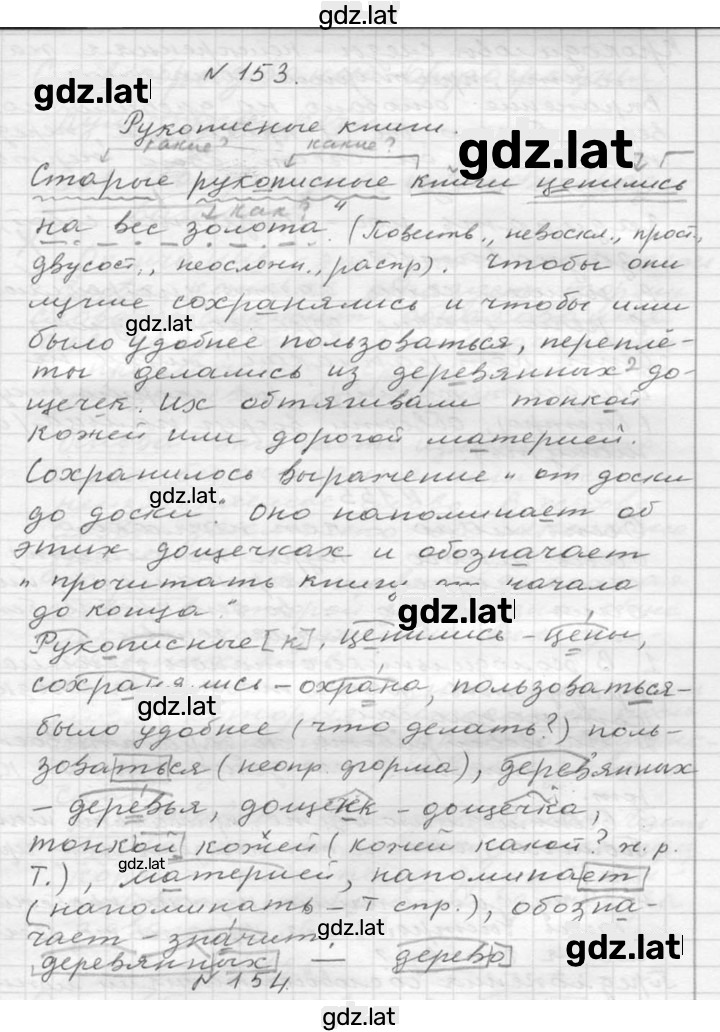 gdz.lat
N 153.
gdz.lat
Рукописные книги.
gdz.lat
какие? какие?
Старые рукописные книги ценились
как?
на вес золота". (Повеств., невоскл., прост.,
двусост., неослож., распр). Чтобы они
лучше сохранялись и чтобы ими
gdz.lat
было удобнее пользоваться, переплё-
ты делались из деревянных² до-
щечек. Их обтягивали тонкой
кожей или дорогой материей.
Сохранилось выражение „от доски
gdz.lat
до доски". Оно напоминает об
этих дощечках и обозначает
„прочитать книгу начала
до конца."
gdz.lat
Рукописные [к], ценились - цены,
сохранялись - охрана, пользоваться-
gdz.lat
было удобнее (что делать?) поль-
зоваться (неопр. форма), деревянных
- деревья, дощечк - дощечка,
тонкой кожей (кожей какой? ж.р.
gdz.lat
Т.), материей, напоминает
(напоминать - I спр.), обозна-
gdz.lat
чает - значит.
gdz.lat
деревянных — дерево
N 154
gdz.lat